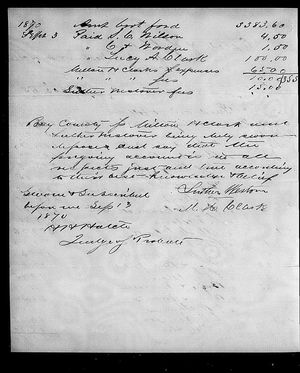 1870 Amt Bot ford 3383.60
Sept 3 Paid L. C. Wilson 4.50
" C. J. 1.50
" Lucy A. Clark 100.00
Milton H Clarks Expenses 65.00
" " " fees 10.00
Luther Westover fees 15.00
Bay County ss Milton H Clark and
Luther Westover being duly sworn
depose and say that the
foregoing account is in all
respects just and true according
to their best Knowledge & belief
Sworn & Subscribed Luther Westover
before me Sep 13 M. H. Clark
1870
Judge of Probate